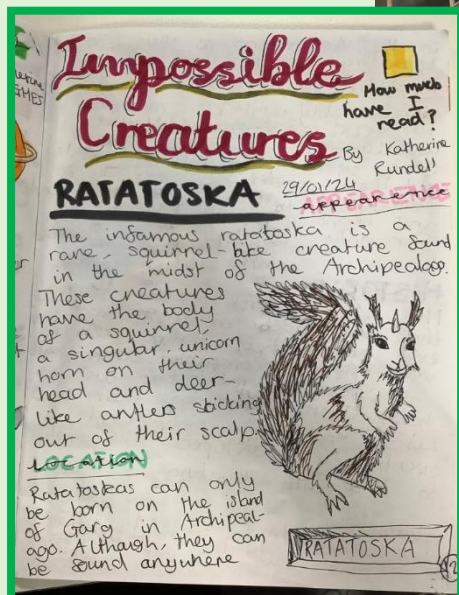 Impossible
Creatures
How much
have I
read?
By Katherine
Rundell
RATATOSKA
29/01/24
APPEARENCE
appearence
The infamous ratatoska is a
rare, squirrel-like creature found
in the midst of the Archipealago.
These creatures
have the body
of a squirrel,
a singular, unicorn
horn on their
head and deer-
like antlers sticking
out of their scalp.
LOCATION
Ratatoskas can only
be born on the island
of Garg in Archipeal-
ago. Although, they can
be found anywhere
RATATOSKA